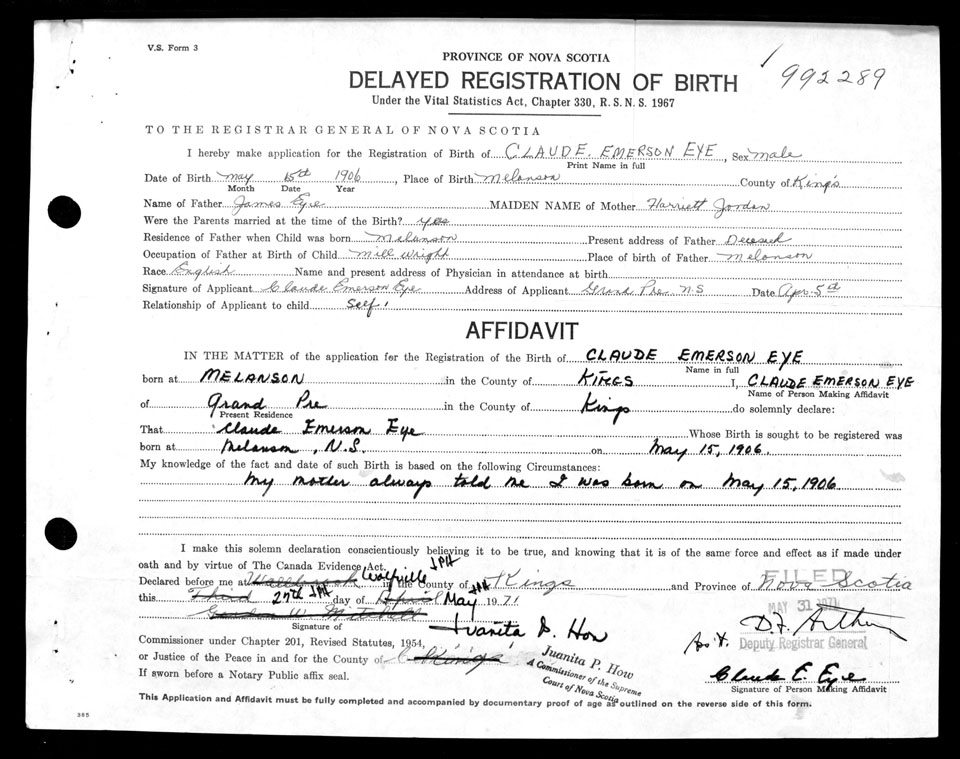 V.S. Form 3
PROVINCE OF NOVA SCOTIA
DELAYED REGISTRATION OF BIRTH
992289
Under the Vital Statistics Act, Chapter 330, R. S. N. S. 1967
TO THE REGISTRAR GENERAL OF NOVA SCOTIA
I hereby make application for the Registration of Birth of CLAUDE. EMERSON EYE, Sex male
Print Name in full
Date of Birth May 15th 1906, Place of Birth Melanson County of King's
Month Date Year
Name of Father James Eye MAIDEN NAME of Mother Harriett Jordan
Were the Parents married at the time of the Birth? yes
Residence of Father when Child was born Melanson Present address of Father Deceased
Occupation of Father at Birth of Child Mill Wright Place of birth of Father Melanson
Race English Name and present address of Physician in attendance at birth
Signature of Applicant Claude Emerson Eye Address of Applicant Grand Pre. N.S Date Apr. 5th
Relationship of Applicant to child Self
AFFIDAVIT
IN THE MATTER of the application for the Registration of the Birth of CLAUDE EMERSON EYE
Name in full
born at MELANSON in the County of KINGS I, CLAUDE EMERSON EYE
Name of Person Making Affidavit
of Grand Pre in the County of Kings do solemnly declare:
Present Residence
That Claude Emerson Eye Whose Birth is sought to be registered was
born at Melanson, N.S. on May 15, 1906.
My knowledge of the fact and date of such Birth is based on the following Circumstances:
My mother always told me I was born on May 15, 1906
I make this solemn declaration conscientiously believing it to be true, and knowing that it is of the same force and effect as if made under
oath and by virtue of The Canada Evidence Act.
JPH
Declared before me at Wallbrook Wolfville in the County of Kings and Province of Nova Scotia
FILED
this Third 27th JPH day of April May JPH 1971
MAY 31 1971
Gordon W. Mitchell
Signature of
Juanita P. How
Deputy Registrar General
Commissioner under Chapter 201, Revised Statutes, 1954,
or Justice of the Peace in and for the County of Kings
Juanita P. How
A Commissioner of the Supreme
Court of Nova Scotia
If sworn before a Notary Public affix seal.
Claude E. Eye
Signature of Person Making Affidavit
This Application and Affidavit must be fully completed and accompanied by documentary proof of age as outlined on the reverse side of this form.
385